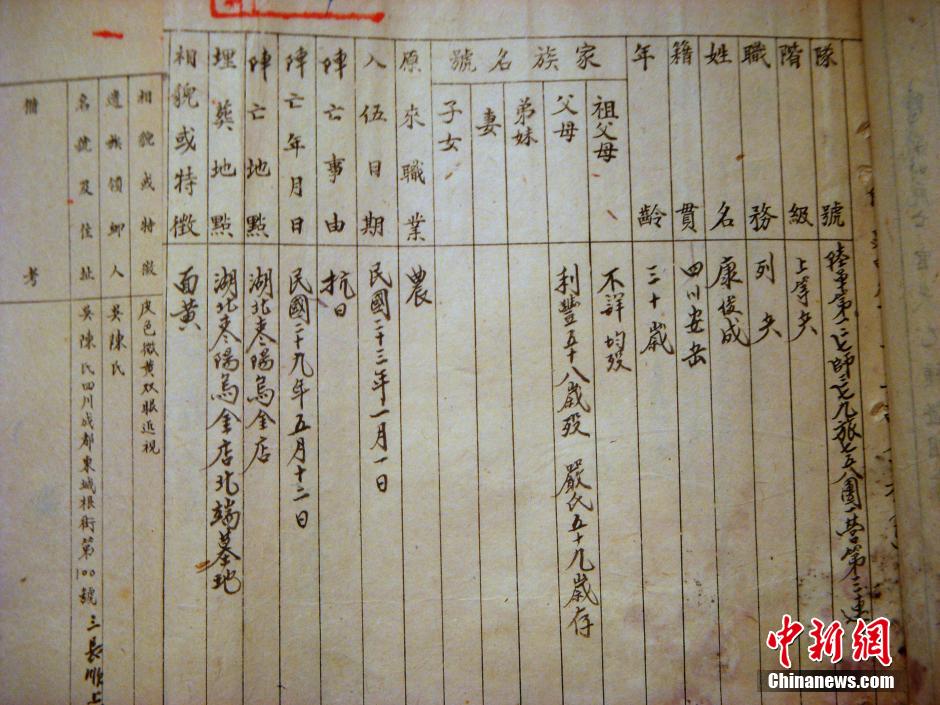 隊號 陸軍第一二七師三七九旅七五八團一營第三連
階級 上等夫
職務 列夫
姓名 康俊成
籍貫 四川安岳
年齡 三十歲
家族名號
祖父母 不詳 均歿
父母 利豐五十八歲歿 嚴氏五十九歲存
弟妹
妻
子女
原來職業 農
入伍日期 民國二十三年一月一日
陣亡事由 抗日
陣亡年月日 民國二十九年五月十二日
陣亡地點 湖北棗陽烏金店
埋葬地點 湖北棗陽烏金店北端墓地
相貌或特徵 面黃
相貌或特徵 皮色微黃双眼近視
遺族領卹人 吳陳氏
名號及住址 吳陳氏四川成都東城根街第100號
備考
三長順上
中新網
Chinanews.com